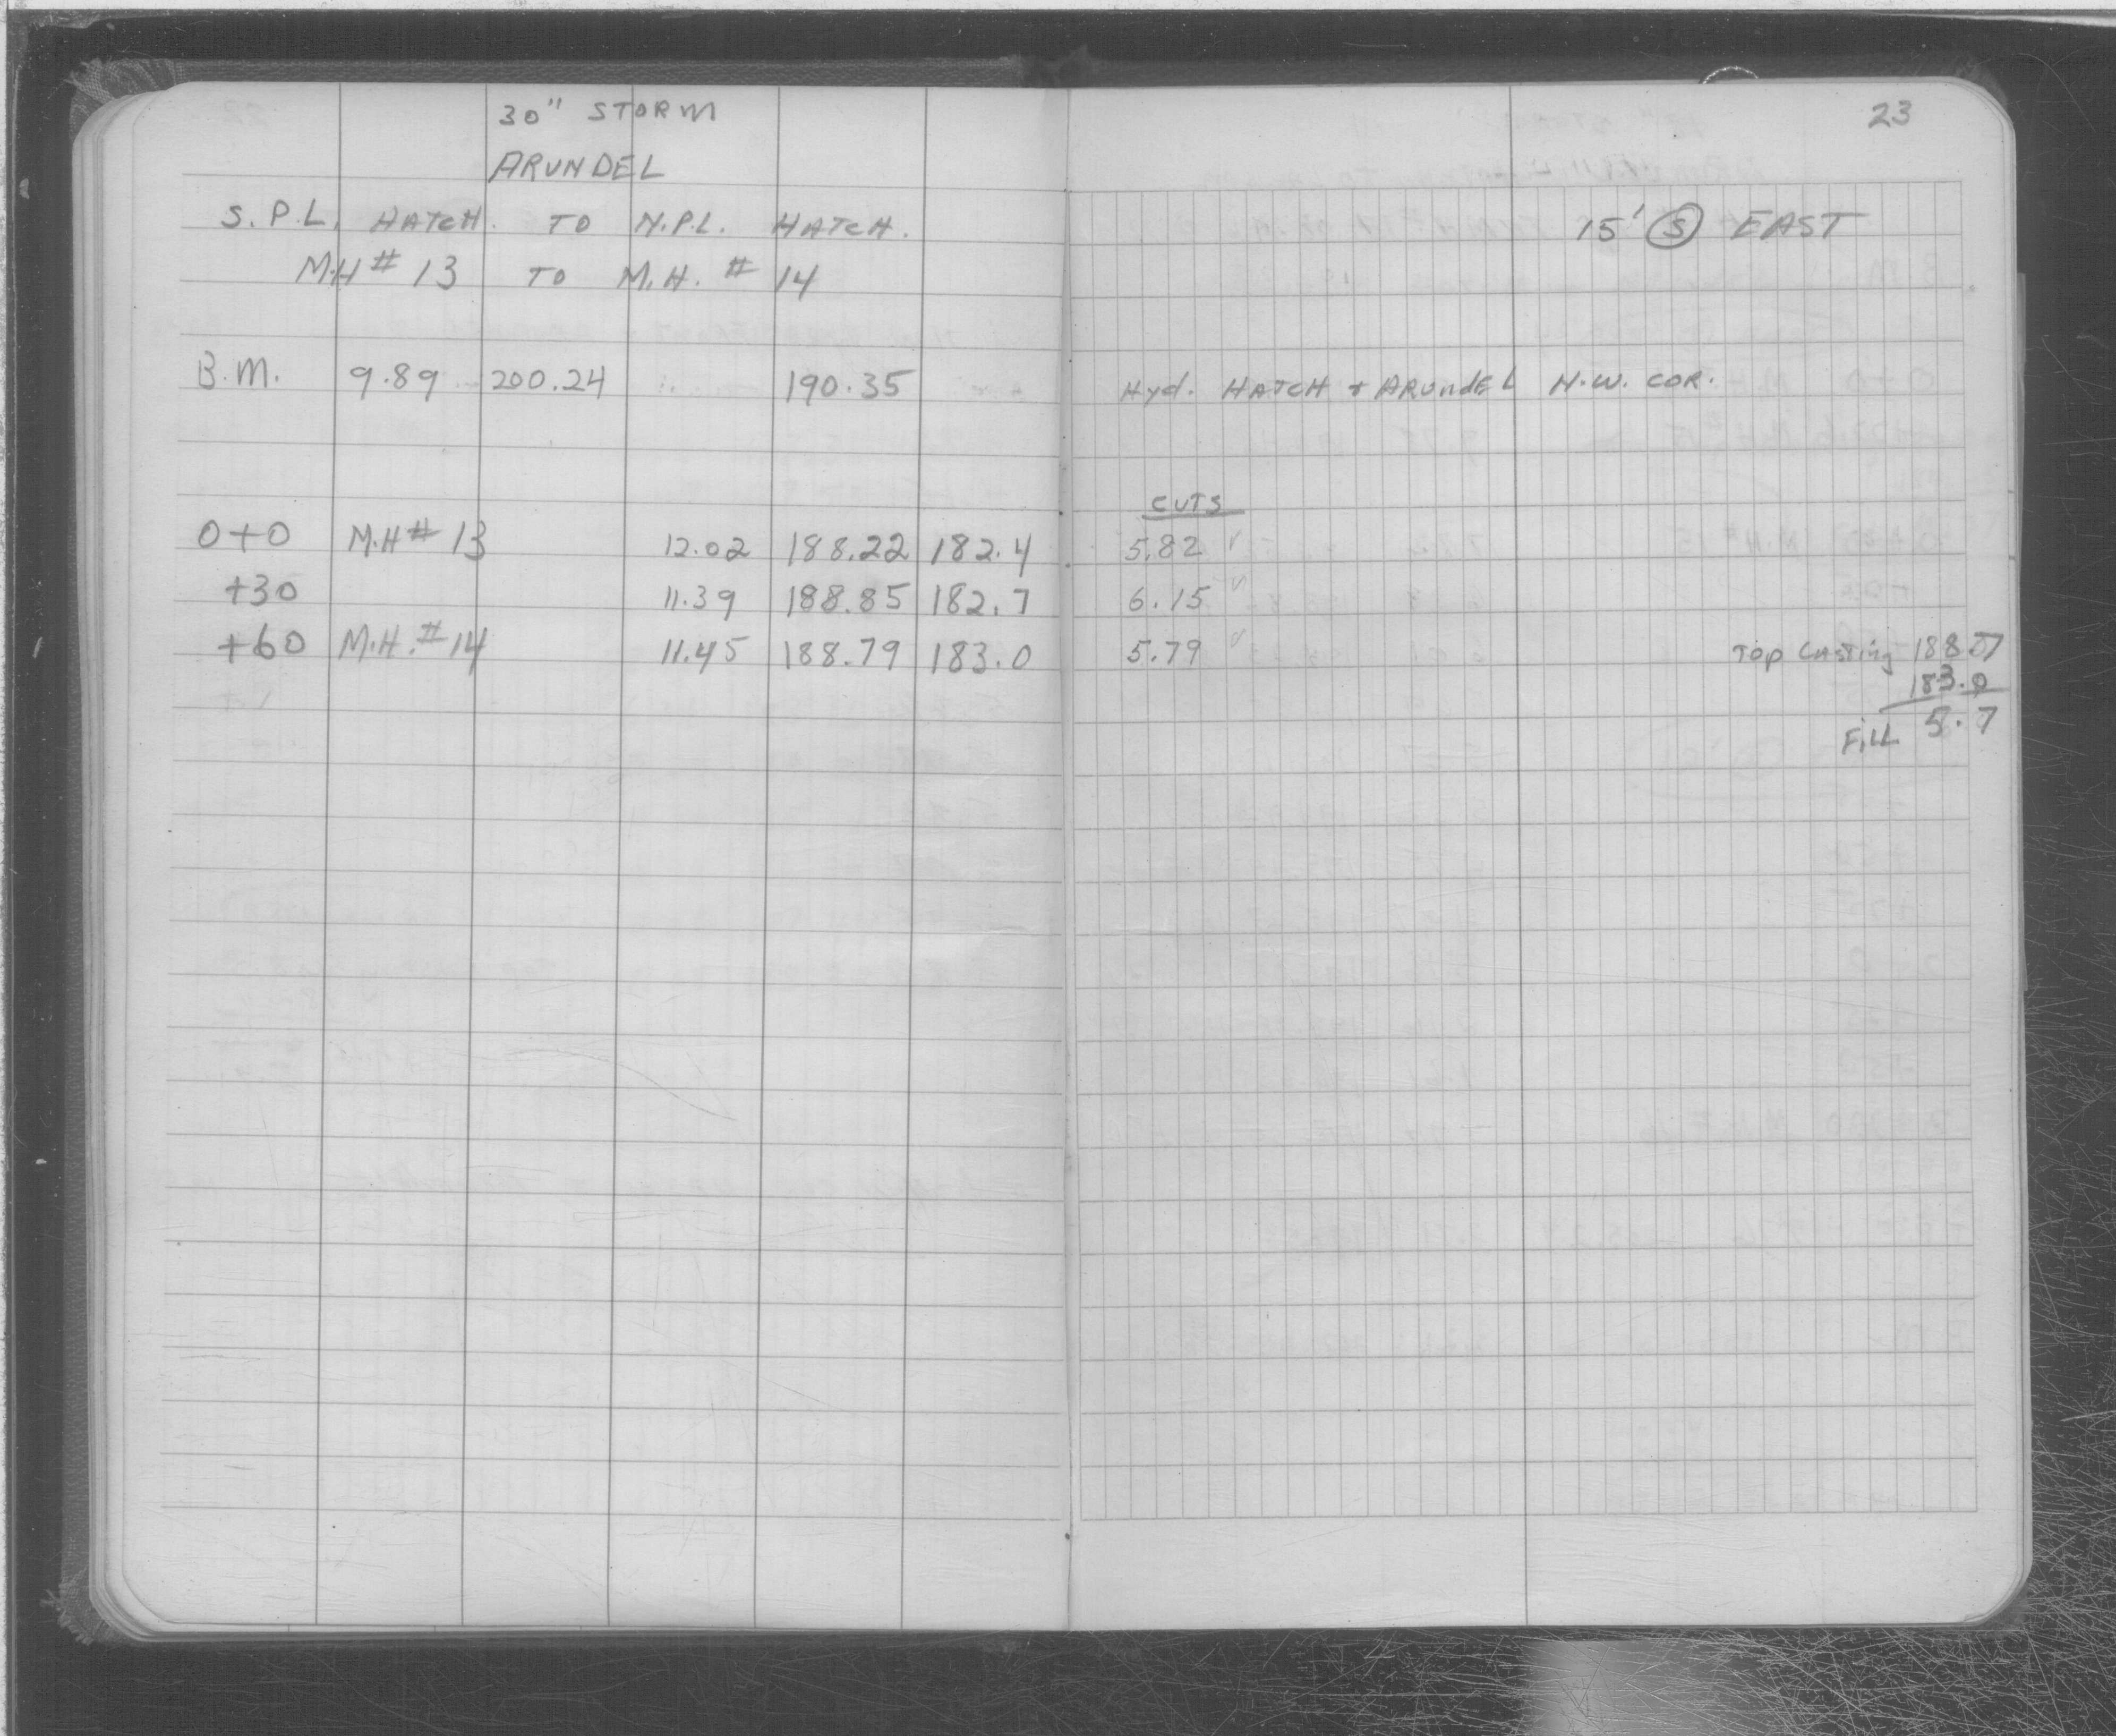 30" STORM
ARUNDEL
S.P.L. HATCH. TO N.P.L. HATCH.
M.H # 13 TO M.H. # 14
B.M. 9.89 200.24 190.35
0+0 M.H # 13 12.02 188.22 182.4
+30 11.39 188.85 182.7
+60 M.H. # 14 11.45 188.79 183.0
23
15' S EAST
Hyd. HATCH + ARUNDEL N.W. COR.
CUTS
5.82 ✓
6.15 ✓
5.79 ✓ Top Casting
183.0
Fill 5.7